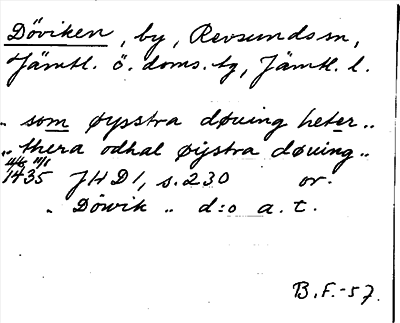 Döviken, by, Revsunds sn,
Jämtl. ö. doms. tg, Jämtl. l.
.. som øysstra døuing heter..
.. thera odhal øijstra døuing..
1435 JHD1, s. 230 or.
.. Döwik .. d:o a. t.
B.F.-57.